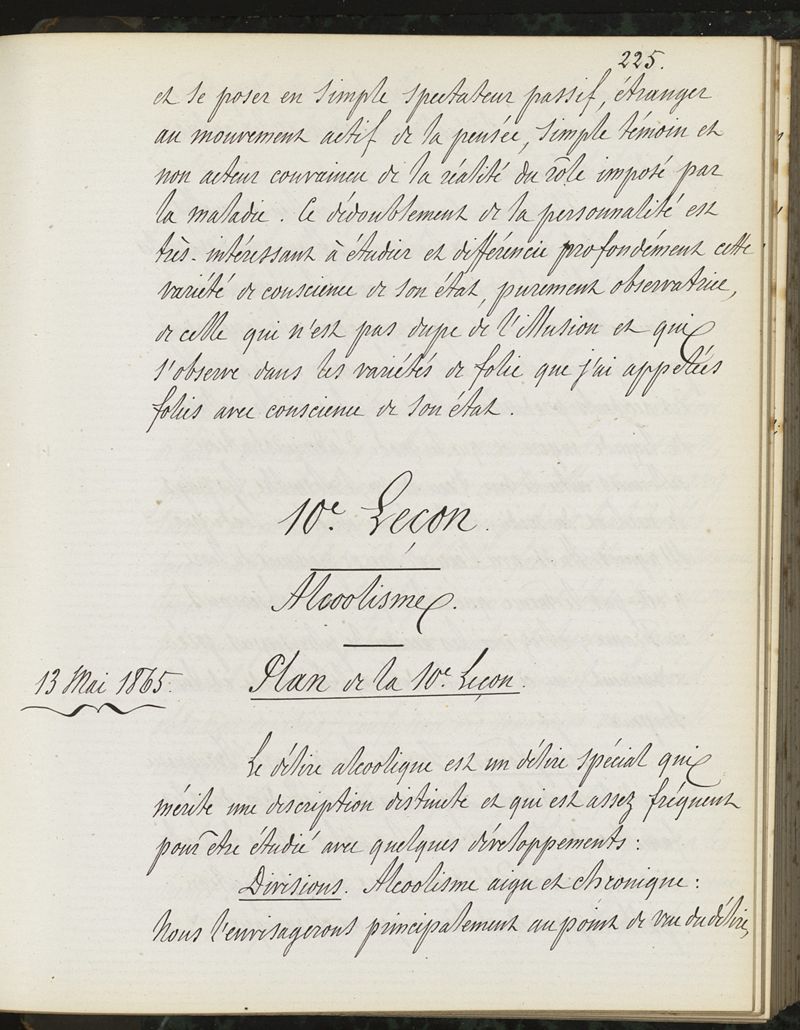 225.
et se poser en simple spectateur passif, étranger
au mouvement actif de la pensée, simple témoin et
non acteur convaincu de la réalité du rôle imposé par
la maladie. Ce dédoublement de la personnalité est
très-intéressant à étudier et différencie profondément cette
variété de conscience de son état, purement observatrice,
de celle qui n'est pas dupe de l'illusion et qui
s'observe dans les variétés de folie que j'ai appelées
folies avec conscience de son état.
10e. Leçon.
Alcoolisme.
13 Mai 1865.
Plan de la 10e. Leçon.
Le délire alcoolique est un délire spécial qui
mérite une description distincte et qui est assez fréquent
pour être étudié avec quelques développements:
Divisions. Alcoolisme aigu et chronique:
Nous l'envisagerons principalement au point de vue du délire,